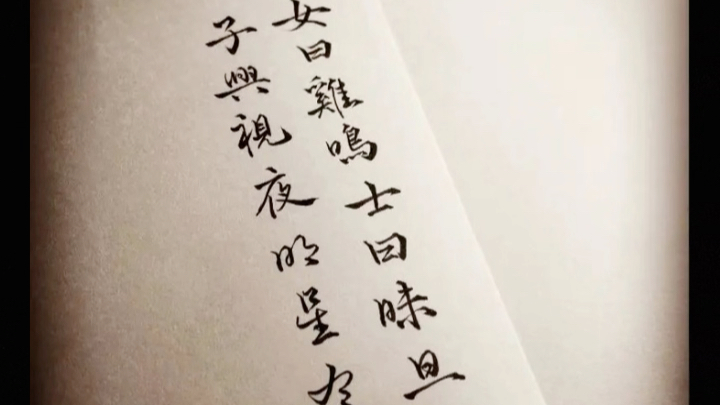 女曰雞鳴士曰昧旦
子興視夜明星有